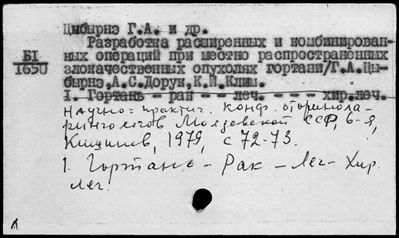 Цыбырнэ Г.А. и др.
Разработка расширенных и комбинирован-
БІ
1650
ных операций при местно распространенных
злокачественных опухолях гортани/Г.А.Цы-
бырнэ,А.С.Дорун,К.П.Клим.
1. Гортань - рак - - леч. - - - - хир.леч.
научно-практич. конф. оторинола-
рингологов Молдавской ССР, 6-я,
Кишинев, 1979, с 72-73.
1. Гортань - Рак - Леч - Хир.
леч.